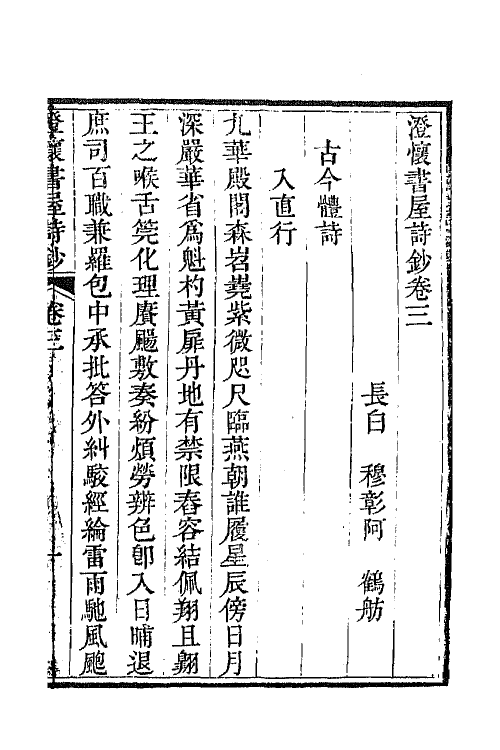 澄懷書屋詩鈔卷三
長白　穆彰阿　鶴舫
古今體詩
入直行
九華殿閣森岧嶤紫微咫尺臨燕朝誰履星辰傍日月
深嚴華省爲魁杓黃扉丹地有禁限舂容結佩翔且翺
王之喉舌筦化理賡颺敷奏紛煩勞辨色卽入日晡退
庶司百職兼羅包中承批答外糾駮經綸雷雨馳風颮
澄懷書屋詩鈔
卷三
一